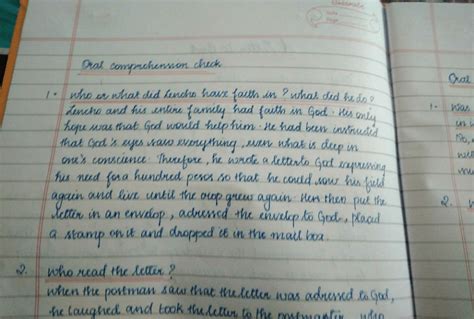 Classmate
Date
Page
Oral comprehension check
1. who or what did Lencho have faith in? what did he do?
Lencho and his entire family had faith in God. His only
hope was that God would help him. He had been instructed
that God's eyes saw everything, even what is deep in
one's conscience. Therefore, he wrote a letter to God expressing
his need for a hundred pesos so that he could sow his field
again and live until the crop grew again. then put the
letter in an envelop, adressed the envelop to God, placed
a stamp on it and dropped it in the mail box
2. who read the letter?
when the postman saw that the letter was adressed to God,
he laughed and took the letter to the postmaster who
Oral
1. was
in
no,
2.